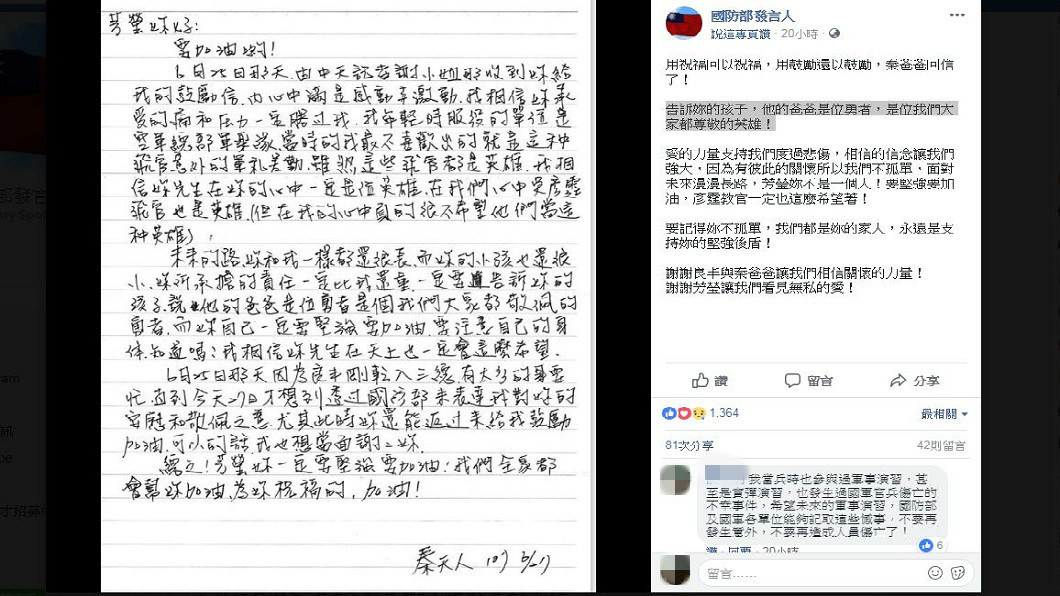 芳瑩妳好:
要加油喲!
6月25日那天,由中天記者謝小姐那收到妳給
我的鼓勵信,內心中滿是感動與激動,我相信妳承
受的痛和压力一定勝过我,我年輕時服役的單位是
空軍總部軍樂隊,當時的我最不喜歡出的就是這种
飛官意外的軍礼差勤,雖然這些飛官都是英雄,我相
信妳先生在妳的心中一定是位英雄,在我們心中吳彥霆
飛官也是英雄,但在我的心中真的很不希望他們當這
种英雄,
未來的路妳和我一樣都還很長,而妳的小孩也還很
小,妳所承擔的責任一定比我還重,一定要告訴妳的
孩子,說他的爸爸是位勇者是個我們大家都敬佩的
勇者,而妳自己一定要堅強要加油,要注意自己的身
体,知道嗎?我相信妳先生在天上也一定會這麼希望.
6月25日那天因為良丰剛転入三總,有太多的事要
忙,直到今天27日才想到透过國防部來表達我對妳的
安慰和敬佩之意,尤其此時妳還能返过來給我鼓勵
加油,可以的話,我也想當面謝謝妳.
總之!芳瑩妳一定要堅強要加油!我們全家都
會幫妳加油,為妳祝福的,加油!
秦天人 107 6/27
國防部發言人
說這專頁讚 · 20小時 ·
用祝福回以祝福,用鼓勵還以鼓勵,秦爸爸回信
了!
告訴妳的孩子,他的爸爸是位勇者,是位我們大
家都尊敬的英雄!
愛的力量支持我們度過悲傷,相信的信念讓我們
強大,因為有彼此的關懷所以我們不孤單、面對
未來漫漫長路,芳瑩妳不是一個人!要堅強要加
油,彥霆教官一定也這麼希望著!
要記得妳不孤單,我們都是妳的家人,永遠是支
持妳的堅強後盾!
謝謝良丰與秦爸爸讓我們相信關懷的力量!
謝謝芳瑩讓我們看見無私的愛!
讚 留言 分享
1,364 最相關
81次分享 42則留言
我當兵時也參與過軍事演習,甚
至是實彈演習,也發生過國軍官兵傷亡的
不幸事件,希望未來的軍事演習,國防部
及國軍各單位能夠記取這些憾事,不要再
發生意外,不要再造成人員傷亡了!
6
讚 · 回覆 · 20小時
留言……